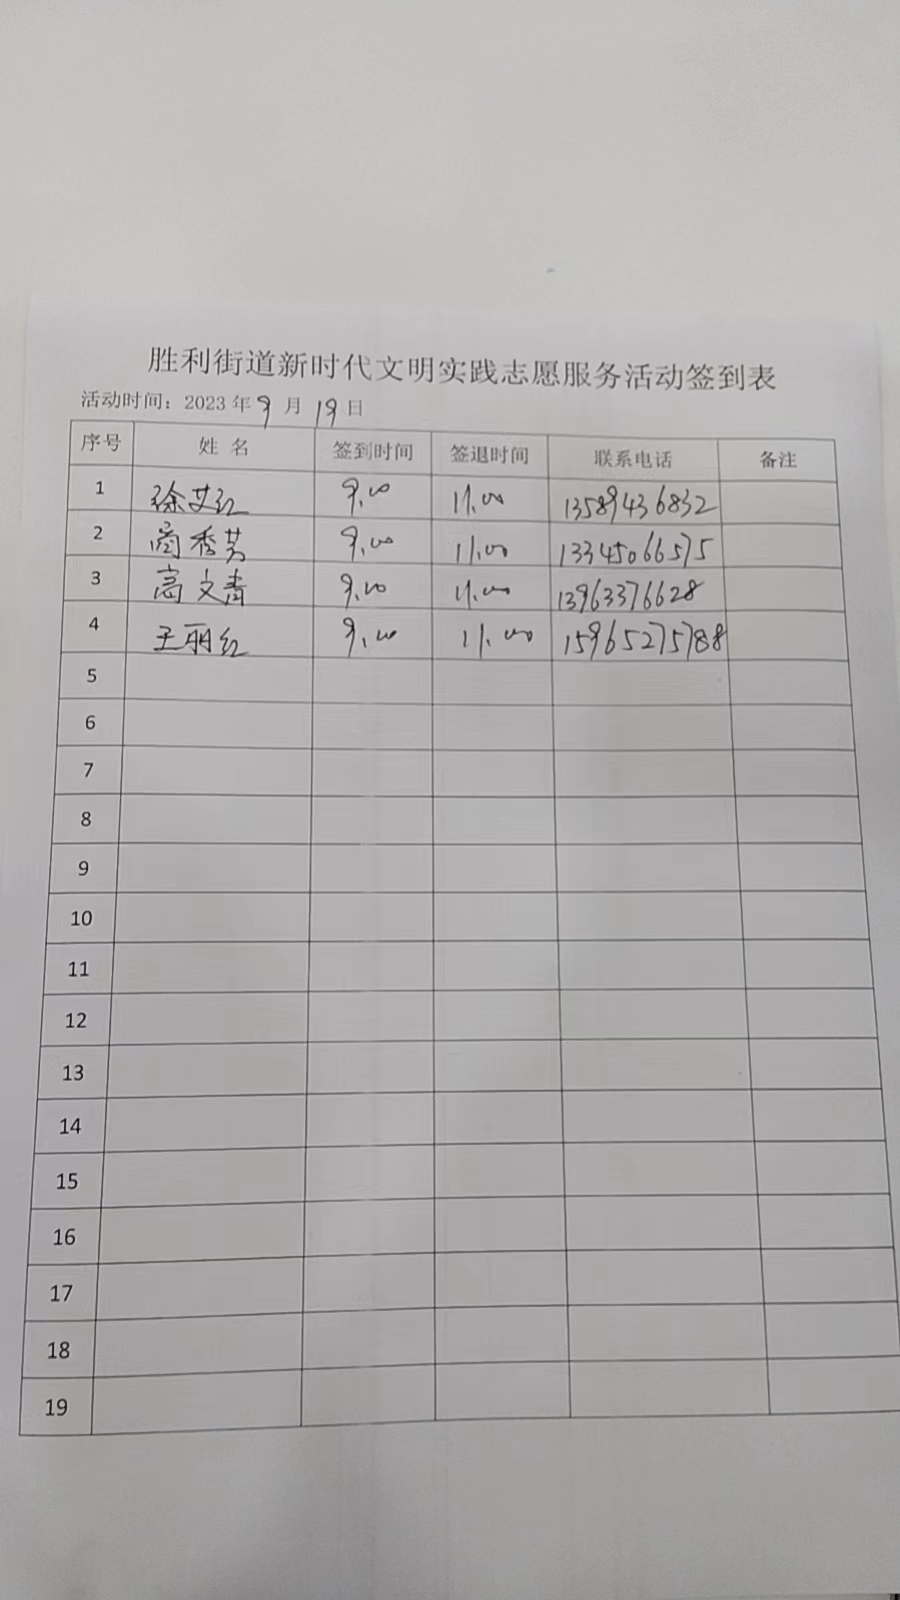 胜利街道新时代文明实践志愿服务活动签到表
活动时间：2023年9月19日
序号 姓名 签到时间 签退时间 联系电话 备注
1 徐艾红 9.00 11.00 13589436832
2 商秀芳 9.00 11.00 13345066575
3 高文青 9.00 11.00 13963376628
4 王丽红 9.00 11.00 15965275788
5
6
7
8
9
10
11
12
13
14
15
16
17
18
19